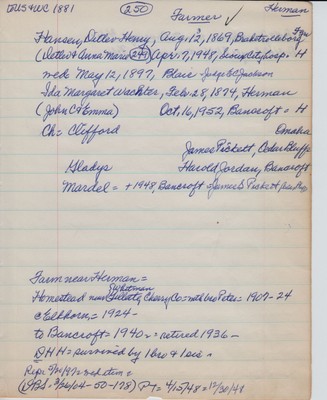 (250)
Farmer ✓
Herman
Hansen, Detlev Henry, Aug. 12, 1869,
(Detlev & Anna Marie 241) Apr. 7, 1948, Sioux City Hosp. = H
wed= May 12, 1897, Blair - Judge E.C. Jackson
Ida Margaret Wachter, Feb. 28, 1874, Herman
(John C & Emma) Oct. 16, 1952, Bancroft = H
Ch = Clifford Omaha
James Pickett, Cedar Bluffs
Gladys Harold Jordan, Bancroft
Mardel = + 1948, Bancroft = James S Pickett,
Farm near Herman =
Whitman
Homestead near Cherry Co = with bro Peter = 1907-24
Elkhorn = 1924 -
to Bancroft = 1940 = retired 1936 -
DHH = survived by 1 bro & 1 sis -
(DBS = 9/26/04 - 50 - 178) PT = 4/15/48 = 12/30/48